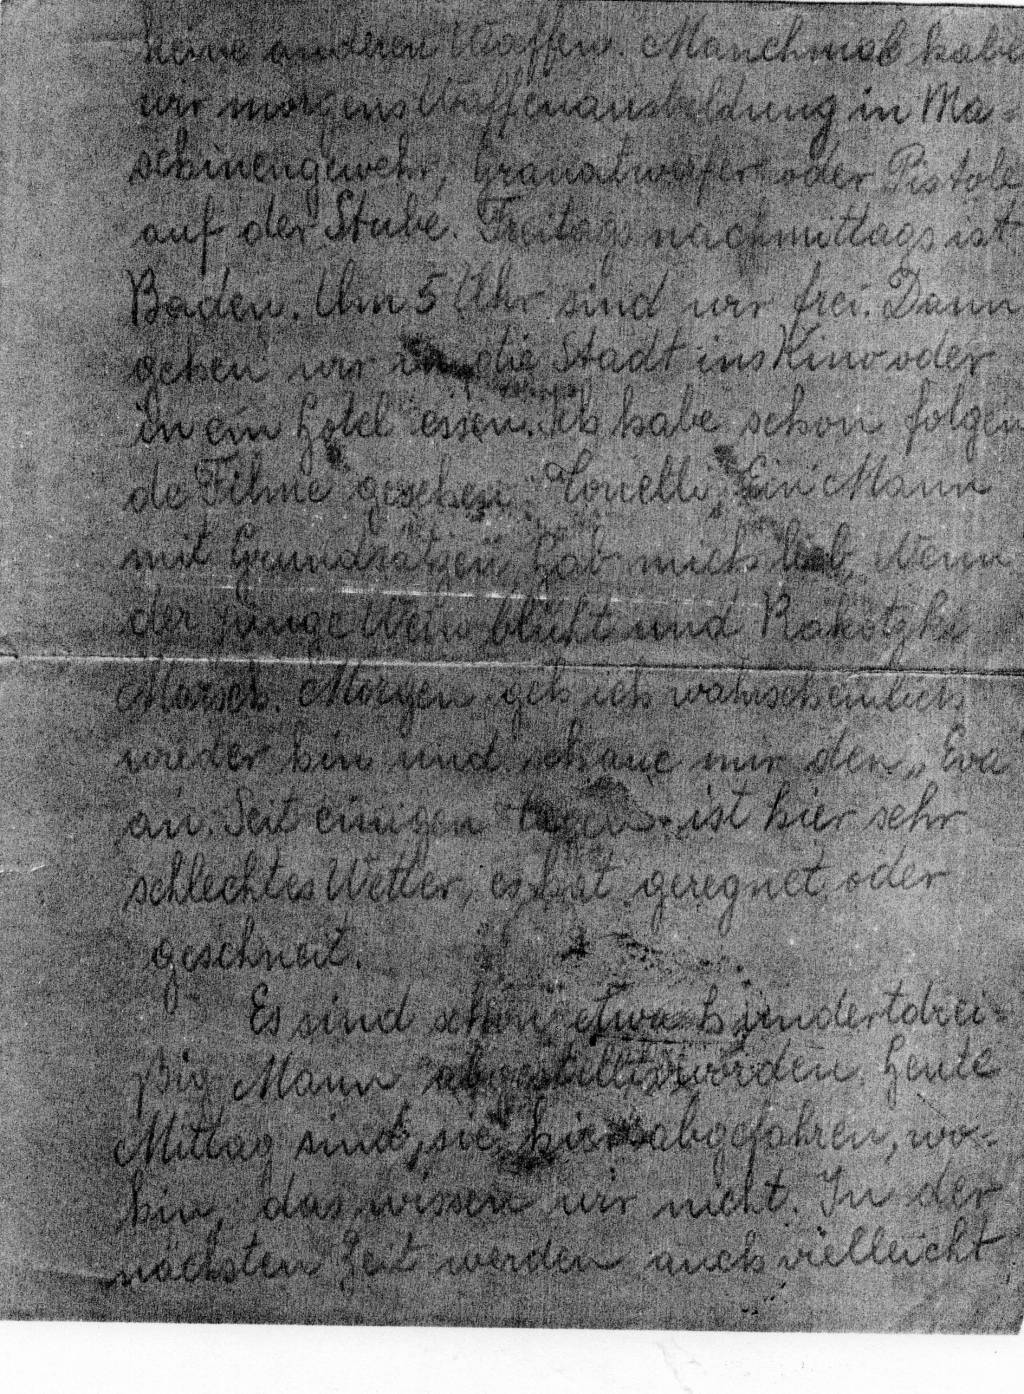 keine anderen Waffen. Manchmal habe
wir morgens Waffenausbildung in Ma-
schinengewehr, Granatwerfer oder Pistole
auf der Stube. Freitags nachmittags ist
Baden. Um 5 Uhr sind wir frei. Dann
gehen wir in die Stadt ins Kino oder
in ein Hotel essen. Ich habe schon folgen
de Filme gesehen: Torelli, Ein Mann
mit Grundsätzen, Hab mich lieb, Wenn
der junge Wein blüht und Rakotzki
Marsch. Morgen geh ich wahrscheinlich
wieder hin und schaue mir den „Eva
an. Seit einigen Tagen ist hier sehr
schlechtes Wetter, es hat geregnet oder
geschneit.
Es sind schon etwa hundertdrei-
ßig Mann abgestellt worden. Heute
Mittag sind sie hier abgefahren, wo-
hin, das wissen wir nicht. In der
nächsten Zeit werden auch vielleicht